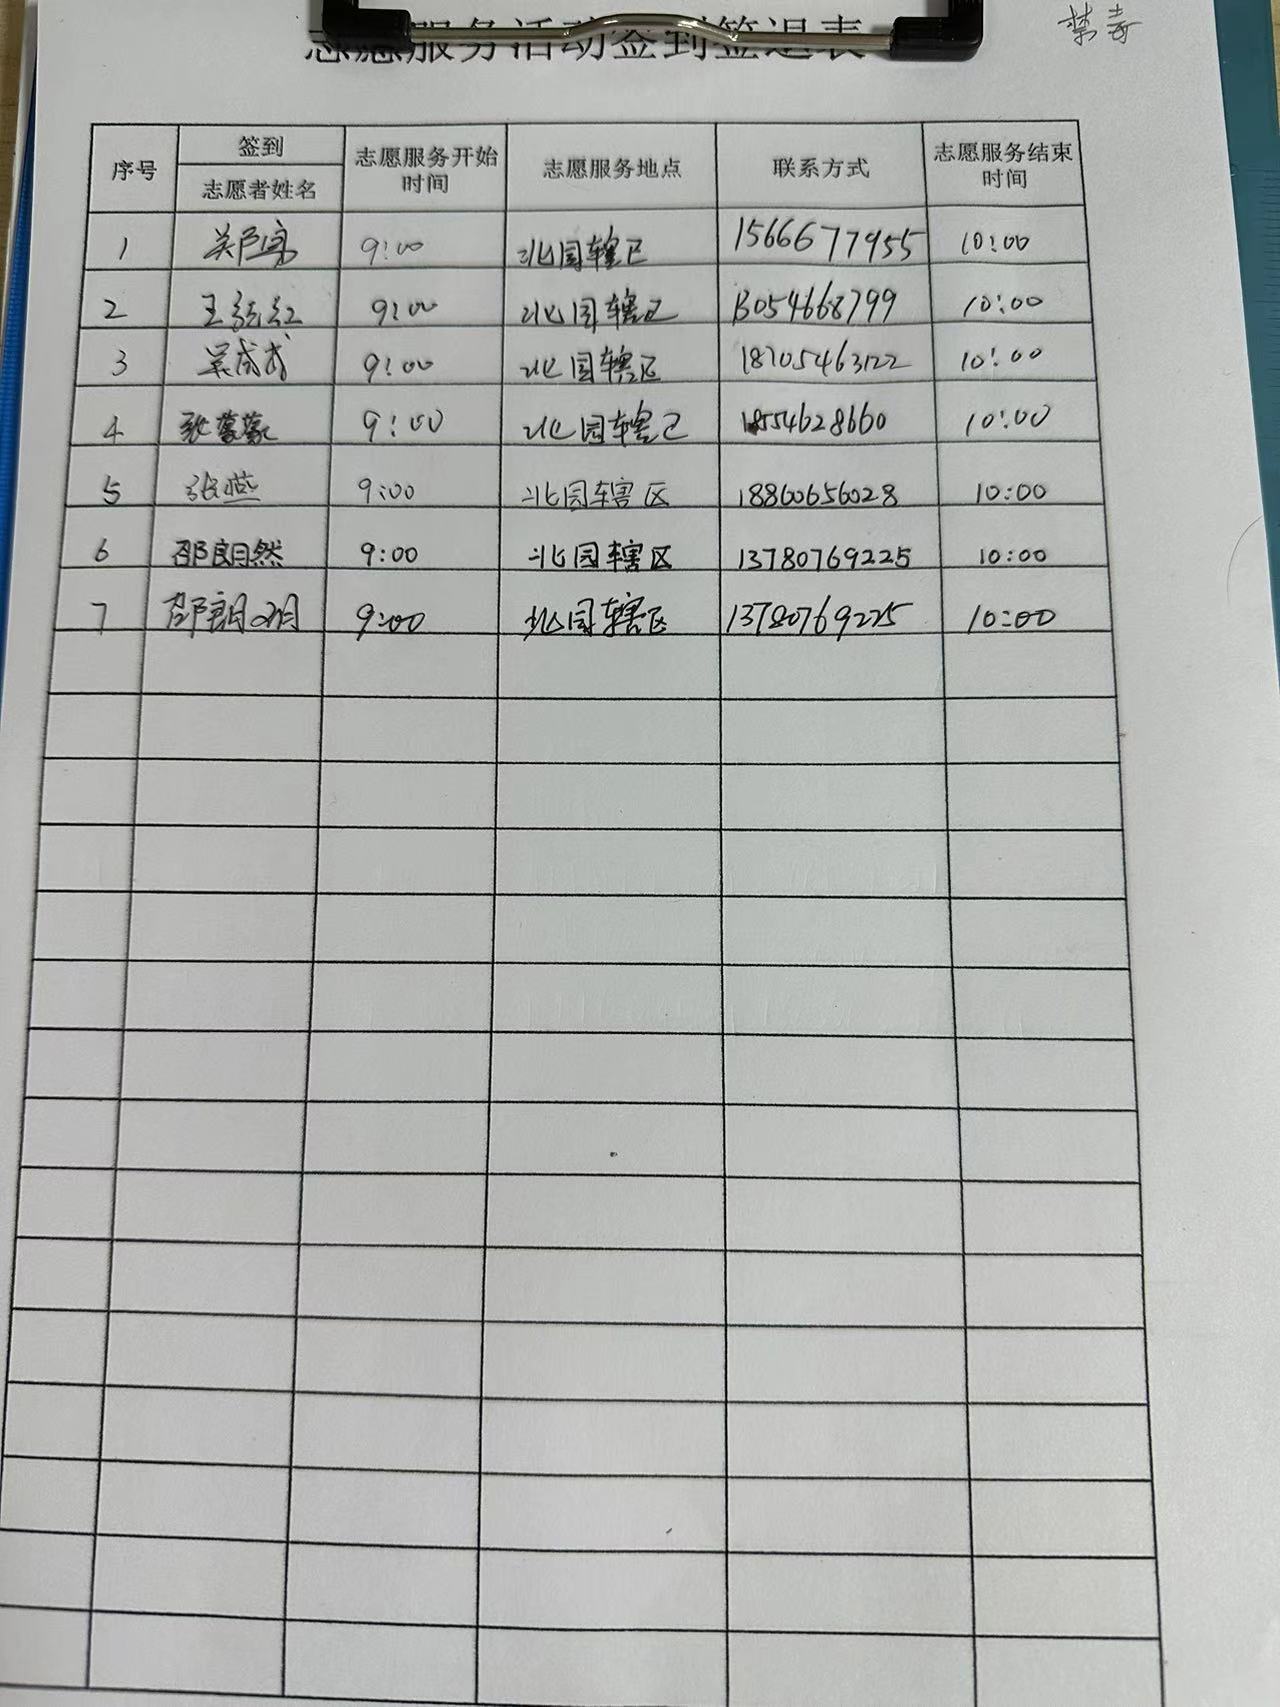 禁毒
志愿服务活动签到签退表
序号 签到 志愿者姓名 志愿服务开始时间 志愿服务地点 联系方式 志愿服务结束时间
1 9:00 北园辖区 15666677955 10:00
2 王 红 9:00 北园辖区 13054668799 10:00
3 吴成成 9:00 北园辖区 18705463122 10:00
4 张蒙蒙 9:00 北园辖区 18554628660 10:00
5 张燕 9:00 北园辖区 18860656028 10:00
6 邵朗然 9:00 北园辖区 13780769225 10:00
7 邵朗月 9:00 北园辖区 13780769225 10:00